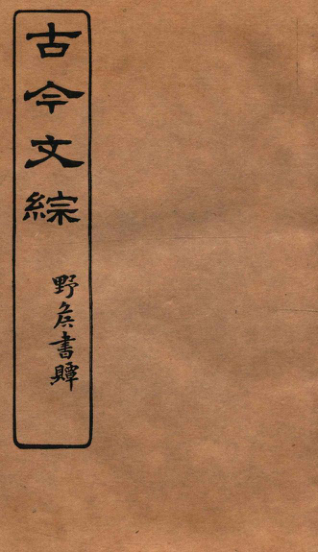 古今文綜
野侯書耑